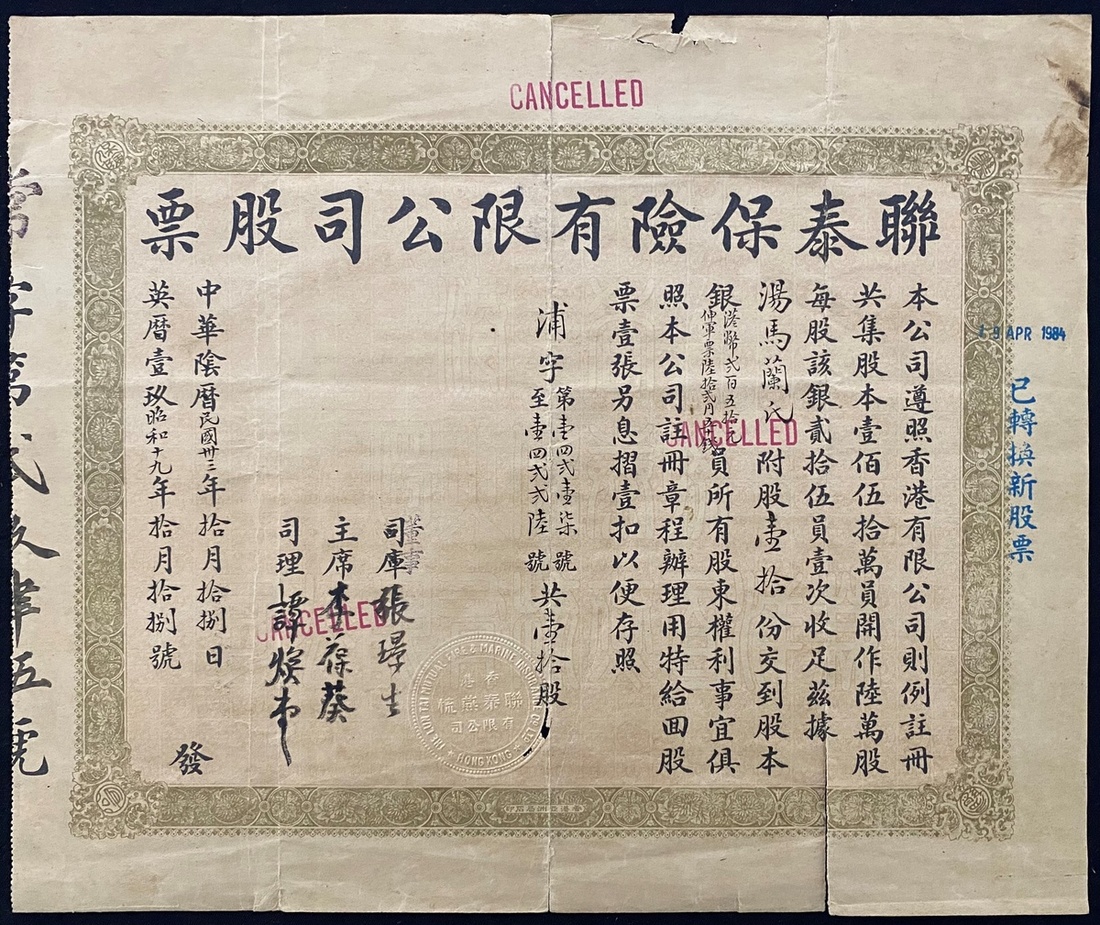 CANCELLED
聯泰保險有限公司股票
19 APR 1984
已轉換新股票
本公司遵照香港有限公司則例註冊
共集股本壹佰伍拾萬員開作陸萬股
每股該銀貳拾伍員壹次收足茲據
湯馬蘭氏附股壹拾份交到股本
銀港幣弍百五拾元
伸軍票陸拾弍円五十錢
員所有股東權利事宜俱
CANCELLED
照本公司註冊章程辦理用特給囬股
票壹張另息摺壹扣以便存照
浦字第壹四弍壹柒號
至壹四弍弍陸號
共壹拾股
董事
司庫張璟生
主席李葆葵
司理譚煥市
CANCELLED
THE LUN TAI MUTUAL FIRE & MARINE INSURANCE CO. LTD.
HONG KONG
香港
聯泰燕梳
有限公司
中華陰曆民國卅三年拾月拾捌日
英曆壹玖昭和十九年拾月拾捌號
發
當字第弍玖肆五號